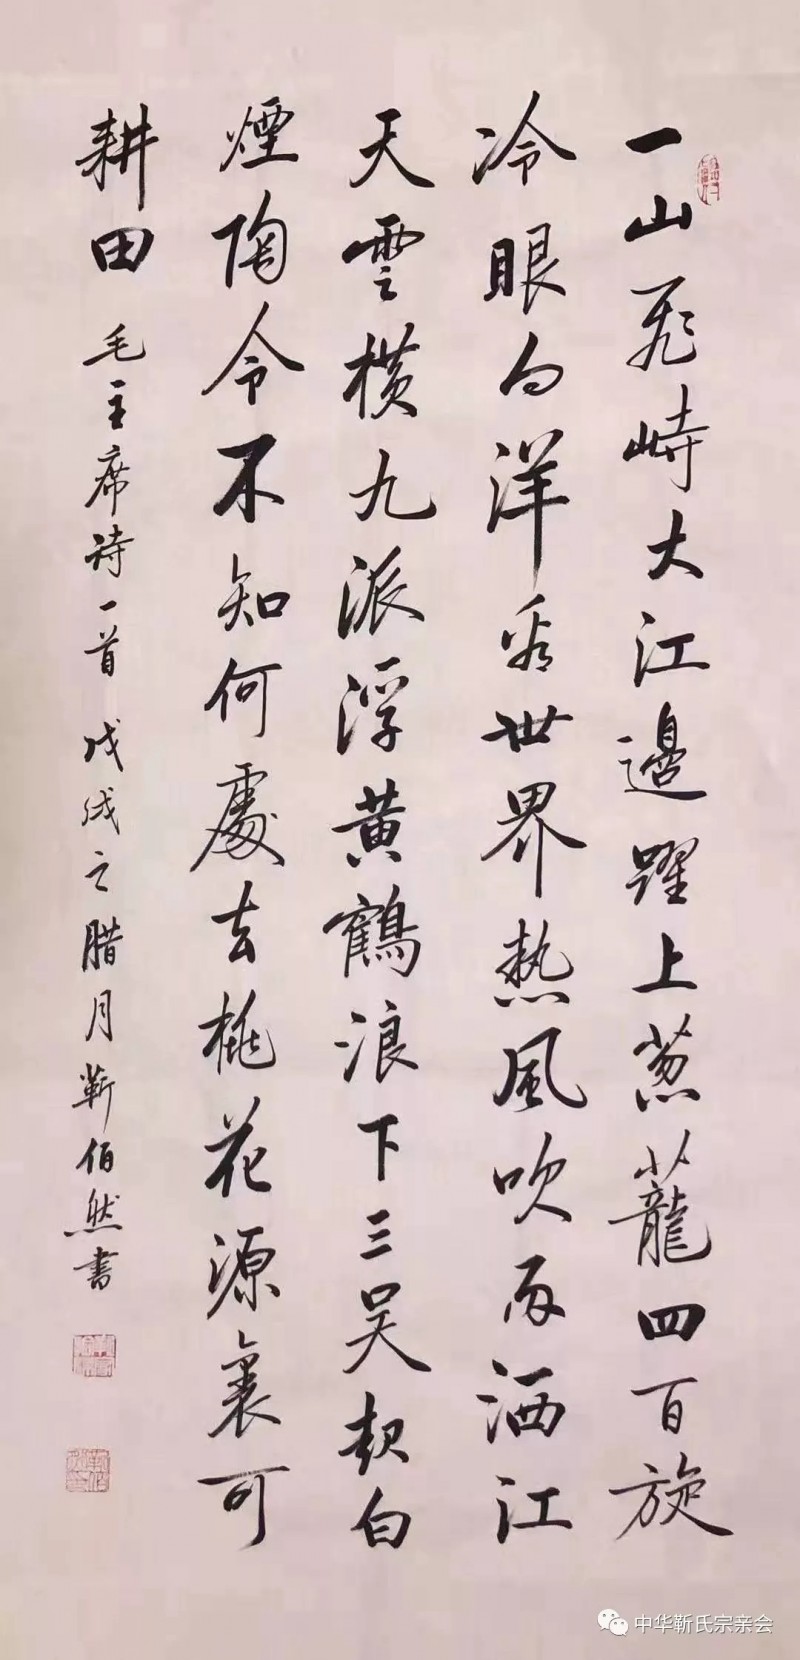 一山飛峙大江邊躍上葱蘢四百旋
冷眼向洋看世界熱風吹雨洒江
天雲橫九派浮黄鶴浪下三吴起白
煙陶令不知何處去桃花源裏可
耕田 毛主席詩一首 戊戌之腊月靳佰然書
中华靳氏宗亲会